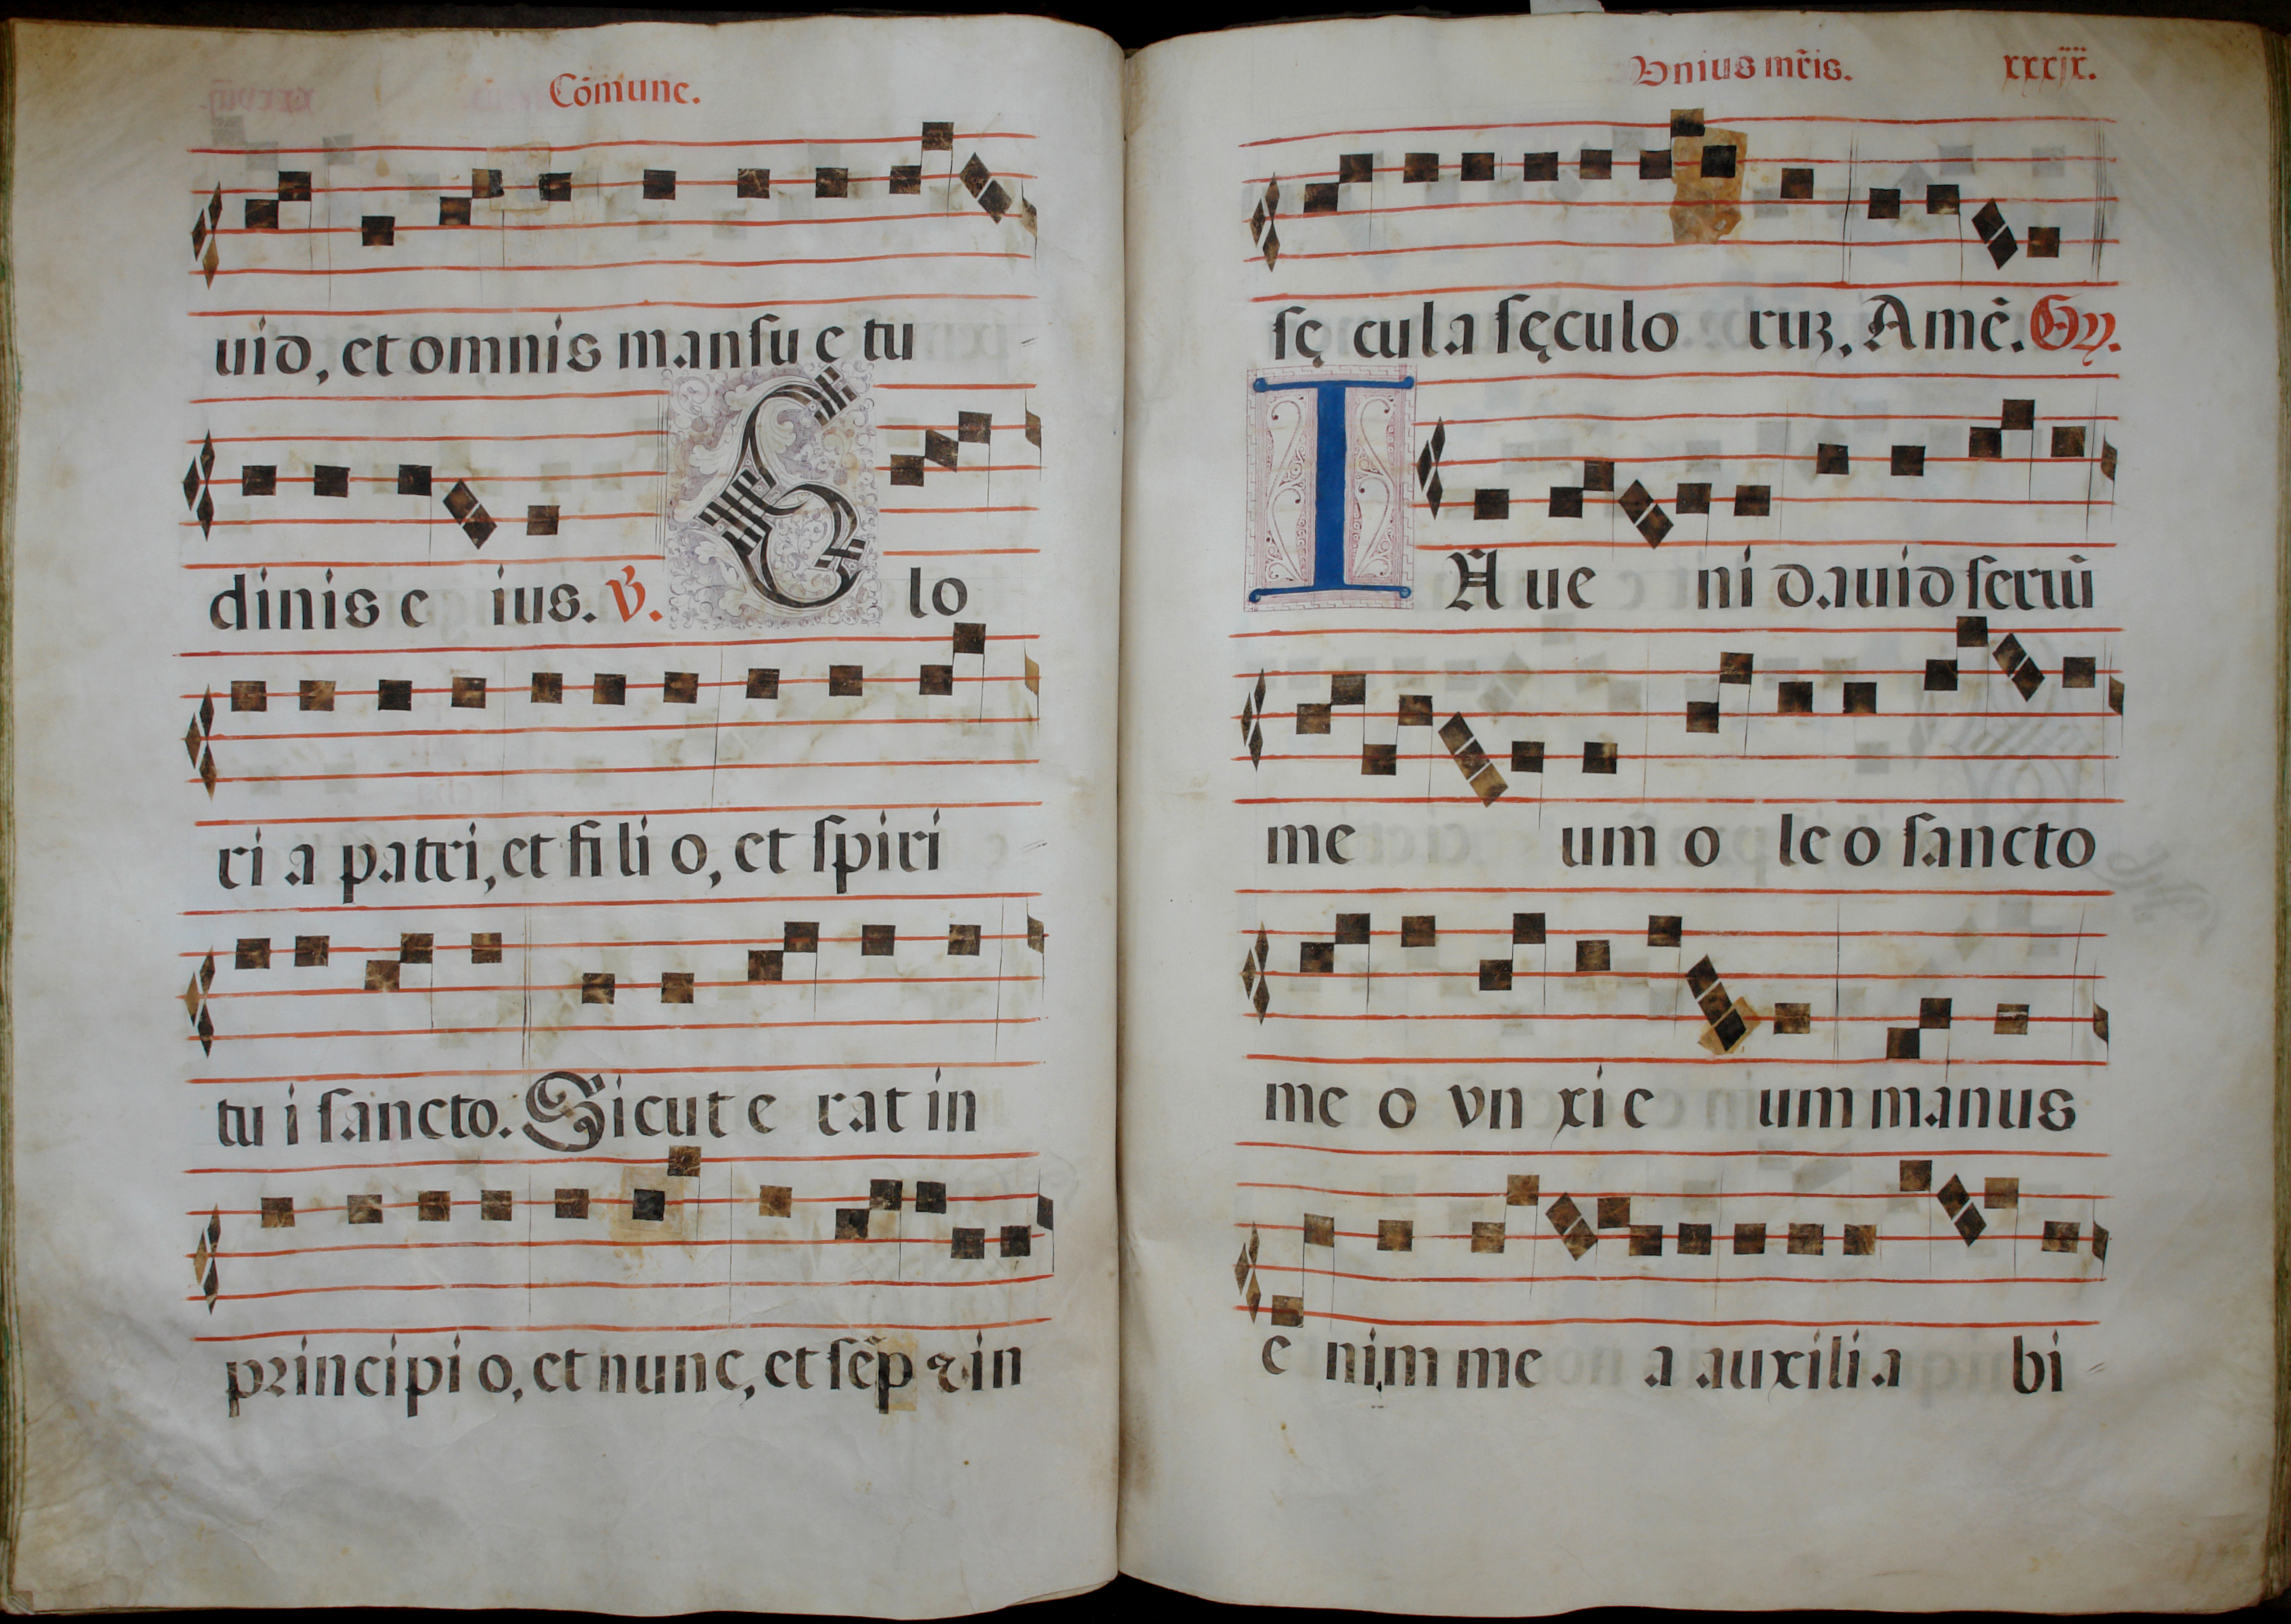 Cōmune.
uid, et omnis mansu e tu
dinis e ius. V. Glo
ri a patri, et fi li o, et spiri
tu i sancto. Sicut e rat in
principi o, et nunc, et sēp ⁊ in
Vnius mr̄is. xxxix.
sę cula sęculo ruꝫ. Amē. Gy.
IN ue ni dauid seruū
me um o le o sancto
me o vn xi e um manus
e nim me a auxili a bi